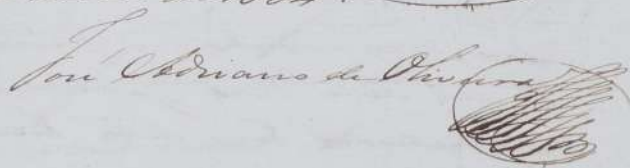 José Adriano de Oliveira